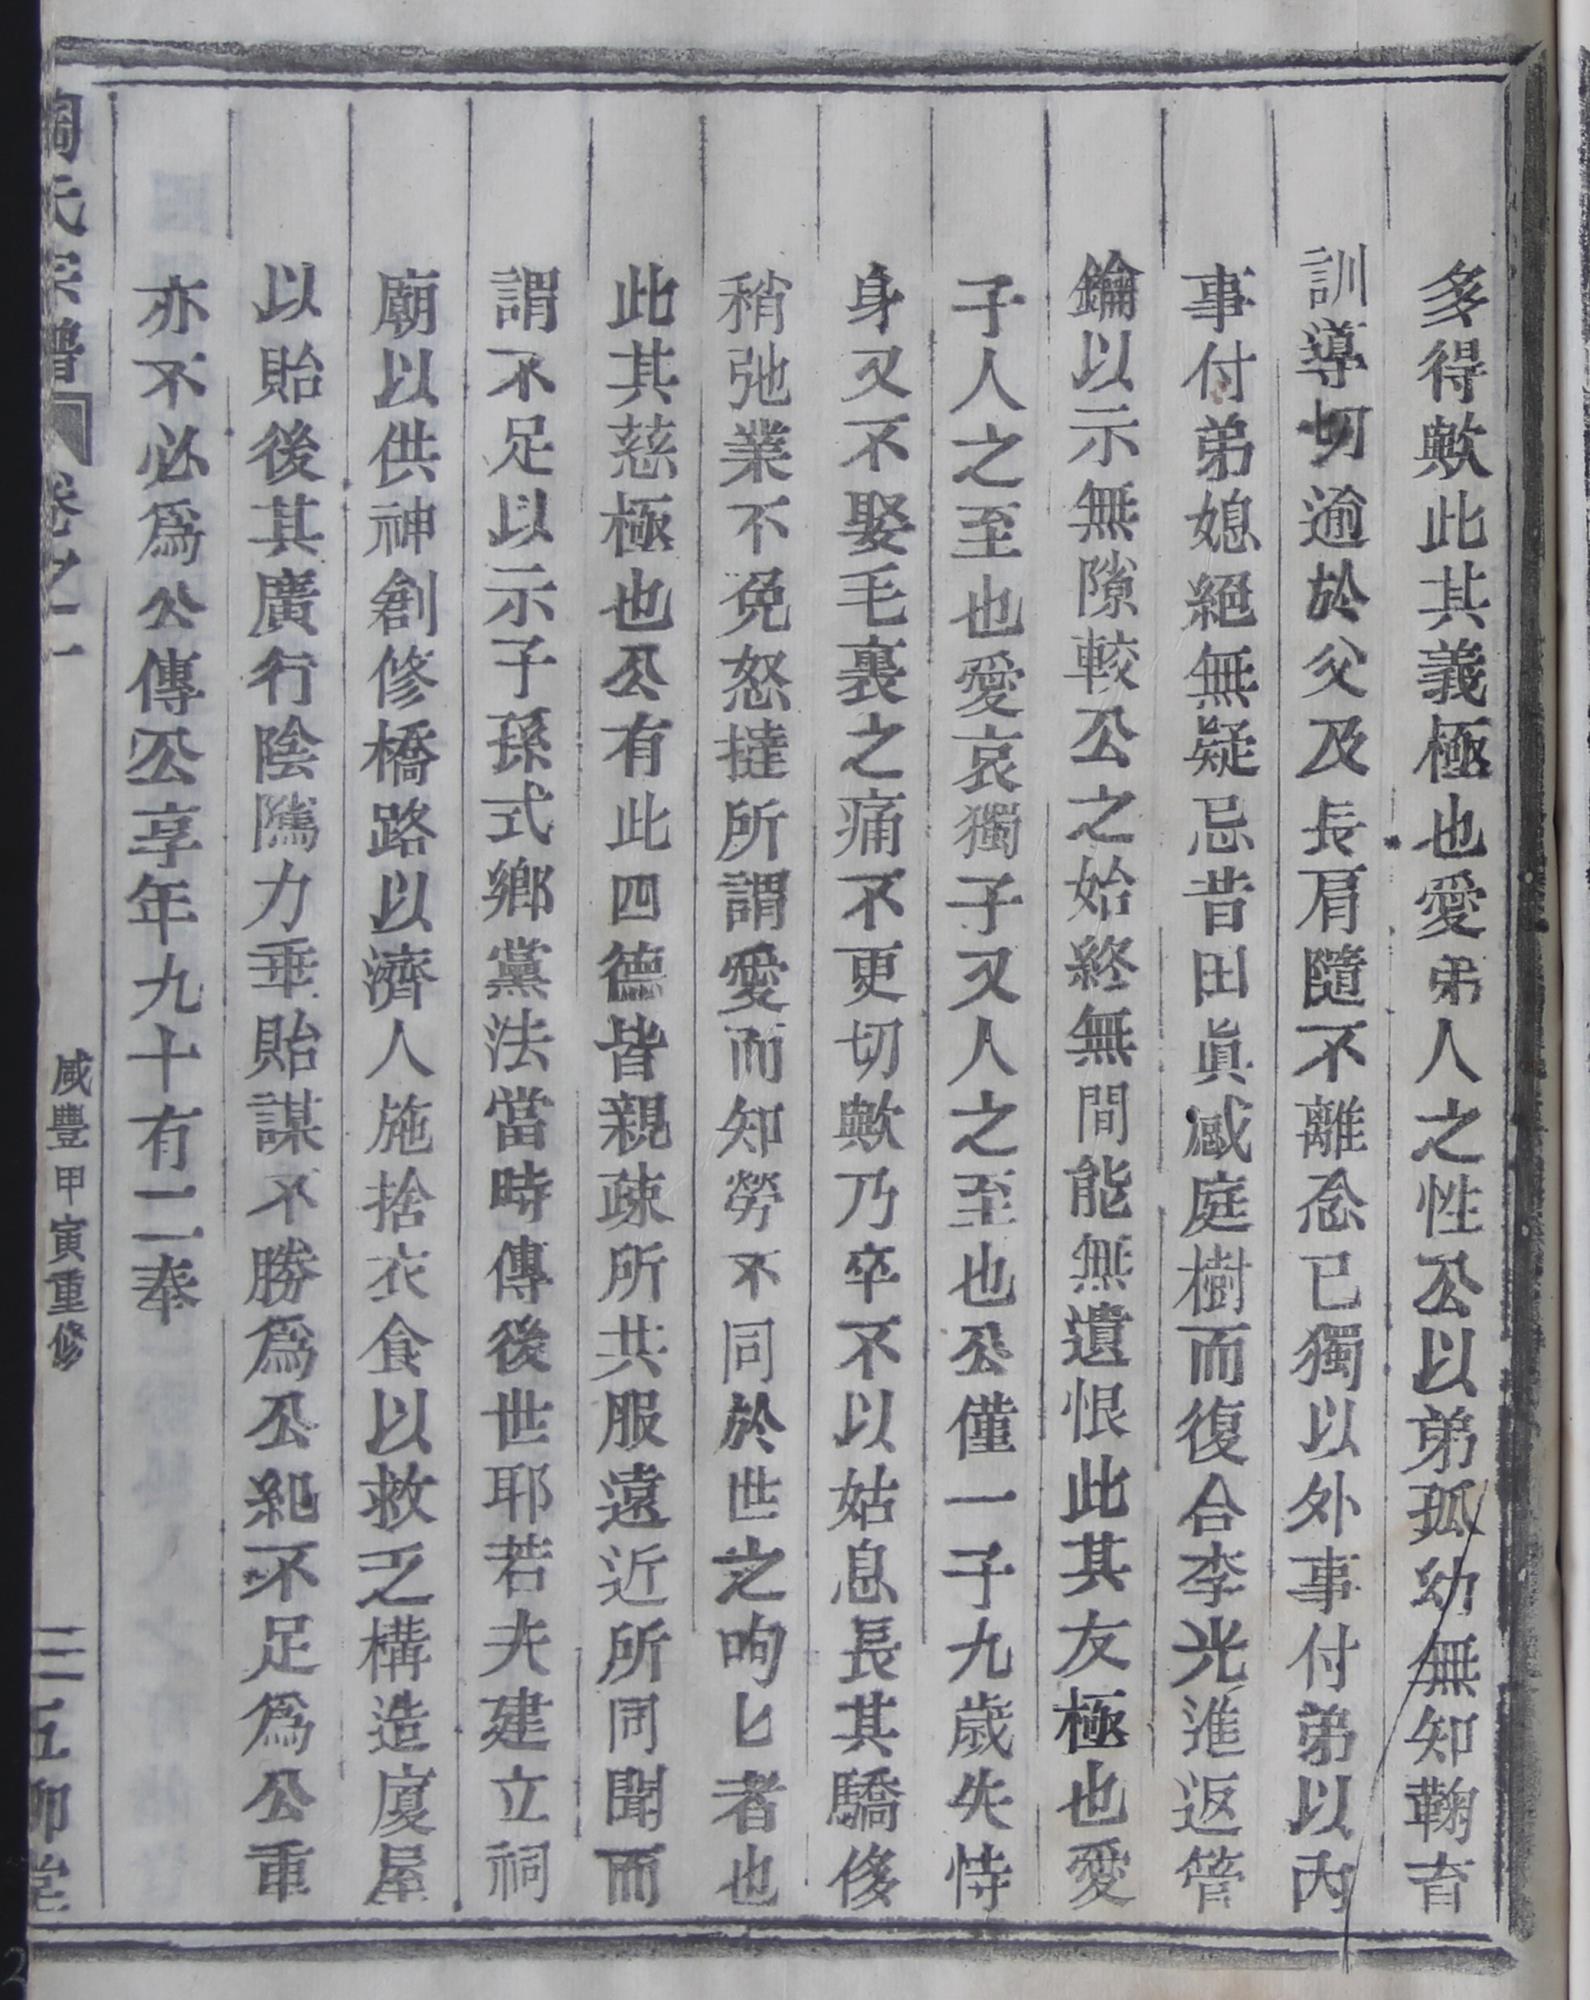 多得歟此其義極也愛弟人之性公以弟孤幼無知鞠育
訓導切逾於父及長肩隨不離念已獨以外事付弟以內
事付弟媳絕無疑忌昔田眞感庭樹而復合李光進返管
鑰以示無隙較公之始終無間能無遺恨此其友極也愛
子人之至也愛哀獨子又人之至也公僅一子九歲失恃
身又不娶毛裏之痛不更切歟乃卒不以姑息長其驕侈
稍弛業不免怒撻所謂愛而知勞不同於世之呴匕者也
此其慈極也公有此四德皆親疎所共服遠近所同聞而
謂不足以示子孫式鄉黨法當時傳後世耶若夫建立祠
廟以供神創修橋路以濟人施捨衣食以救乏構造廈屋
以貽後其廣行陰隲力垂貽謀不勝為公紀不足為公重
亦不必為公傳公享年九十有二奉
陶氏宗譜 卷之一 咸豐甲寅重修 三 五柳堂